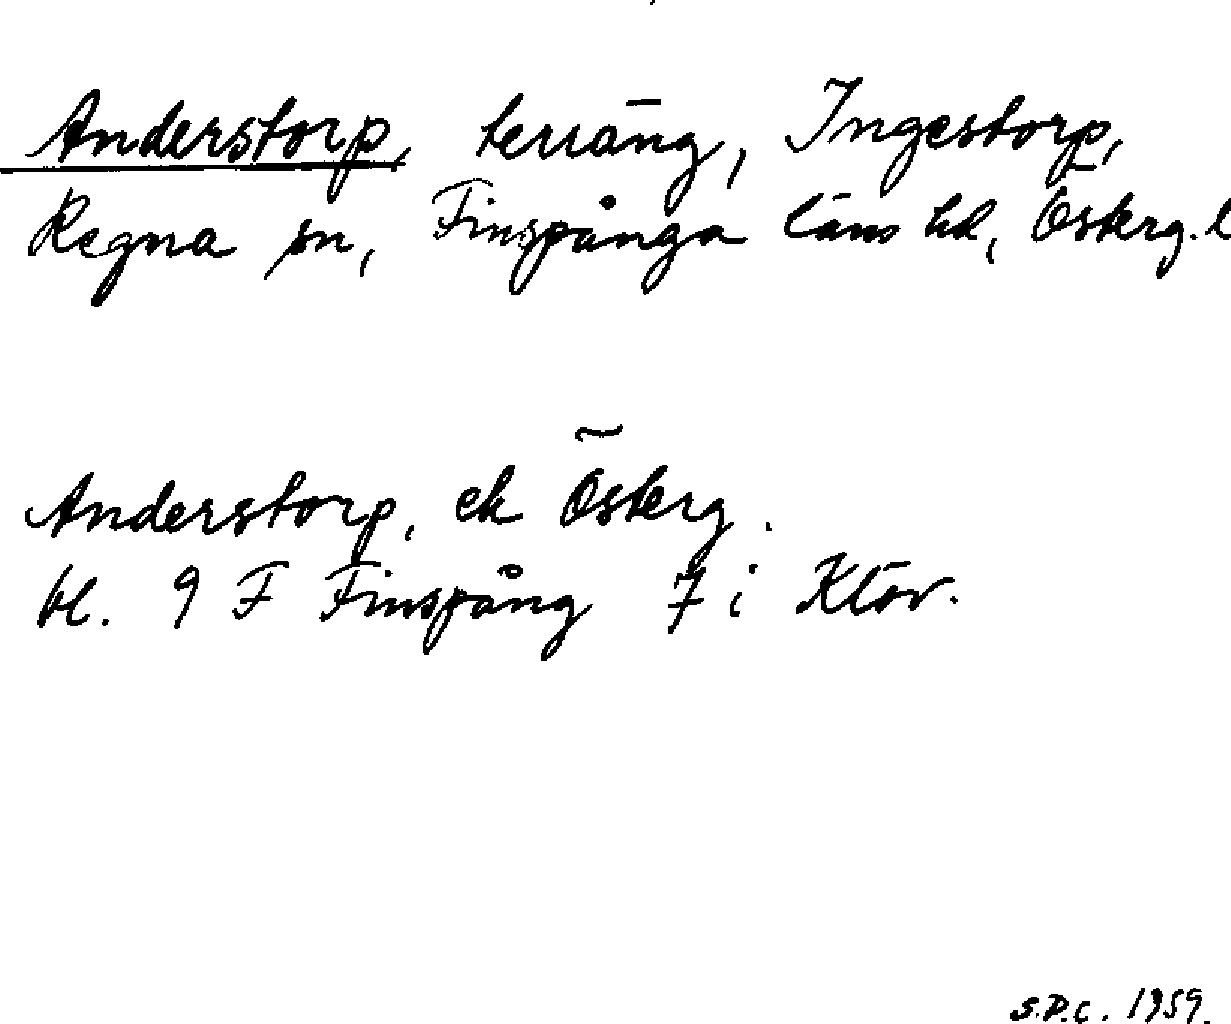 Anderstorp, terräng, Ingestorp,
Regna sn, Finspånga läns hd, Österg. l
Anderstorp, ek Österg.
bl. 9 F Finspång 7 i Klöv.
S.P.C. 1959.